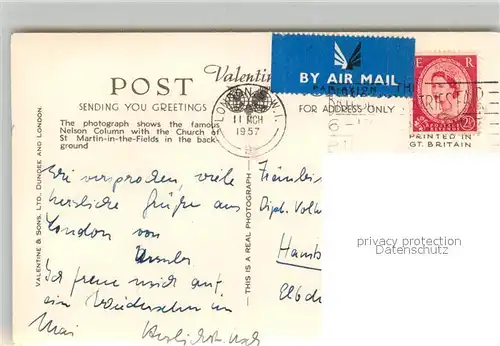 Valentin
POST
BY AIR MAIL
PAR AVION
E R
SENDING YOU GREETINGS
FOR ADDRESS ONLY
LONDON S.W.1.
11 MCH
1957
The photograph shows the famous
Nelson Column with the Church of
St Martin-in-the-Fields in the back-
ground
PRINTED IN
GT. BRITAIN
VALENTINE & SONS, LTD. DUNDEE AND LONDON.
Wie versprochen viele
herzliche Grüße aus
London von
Ich freue mich auf
ein Wiedersehen im
Mai
THIS IS A REAL PHOTOGRAPH
Fräulein
Dipl. Volk
Hamb
Elbch
privacy protection
Datenschutz